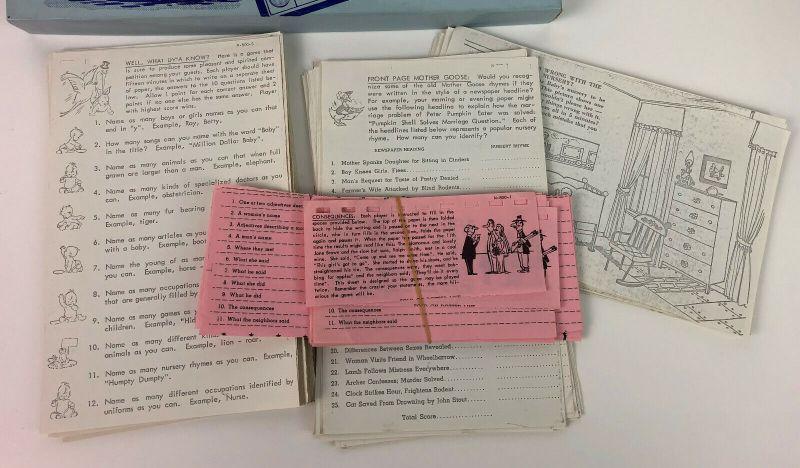 H-500-5
WELL, WHAT DY'A KNOW? Here is a game that
is sure to produce some pleasant and spirited com-
petition among your guests. Each player should have
fifteen minutes in which to write on a separate sheet
of paper, the answers to the 10 questions listed be-
low. Allow 1 point for each correct answer and 2
points if no one else has the same answer. Player
with highest score wins.
1. Name as many boys or girls names as you can that
end in "y". Example, Ray, Betty.
2. How many songs can you name with the word "Baby"
in the title? Example, "Million Dollar Baby".
3. Name as many animals as you can that when full
grown are larger than a man. Example, elephant.
4. Name as many kinds of specialized doctors as you
can. Example, obstetrician.
5. Name as many fur bearing
Example, tiger.
6. Name as many articles as you
with a baby. Example, boot
7. Name the young of as man
you can. Example, horse
8. Name as many occupations
that are generally filled b
9. Name as many games as y
children. Example, "Hid
10. Name as many different kind
animals as you can. Example, lion - roar.
11. Name as many nursery rhymes as you can. Example,
"Humpty Dumpty".
12. Name as many different occupations identified by
uniforms as you can. Example, Nurse.
FRONT PAGE MOTHER GOOSE: Would you recog-
nize some of the old Mother Goose rhymes if they
were written in the style of a newspaper headline?
For example, your morning or evening paper might
use the following headline to explain how the mar-
riage problem of Peter Pumpkin Eater was solved:
"Pumpkin Shell Solves Marriage Question." Each of
the headlines listed below represents a popular nursery
rhyme. How many can you identify?
NEWSPAPER HEADING NURSERY RHYME
1. Mother Spanks Daughter for Sitting in Cinders
2. Boy Kisses Girls, Flees
3. Man's Request for Taste of Pastry Denied
4. Farmer's Wife Attacked by Blind Rodents
20. Differences Between Sexes Revealed
21. Woman Visits Friend in Wheelbarrow
22. Lamb Follows Mistress Everywhere
23. Archer Confesses; Murder Solved
24. Clock Strikes Hour, Frightens Rodent
25. Cat Saved From Drowning by John Stout
Total Score
1. One or two adjectives desc
2. A woman's name
3. Adjectives describing a m
4. A man's name
5. Where they met
6. What she said
7. What he said
8. What she did
9. What he did
10. The consequences
11. What the neighbors said
H-500-1
CONSEQUENCES: Each player is instructed to fill in the
spaces provided below. The top of the paper is then folded
back to hide the writing and is passed on to the next in the
circle, who in turn fills in the second line, folds the paper
again and passes it. When the paper is passed for the 11th
time the results might read like this: The glamorous and lovely
Jane Brown and the nice but mean, Ralph Smith, met in a coal
mine. She said, "Come up and see me some time". He said,
"This girl's got to go". She started to shine his shoes, and he
straightened his tie. The consequences were, they went bob-
bing for apples" and the neighbors said, "They'll do it every
time". This sheet is designed so the game may be played
twice. Remember the crazier your statements, the more hilar-
ious the game will be.
10. The consequences
11. What the neighbors said
WRONG WITH THE
NURSERY?